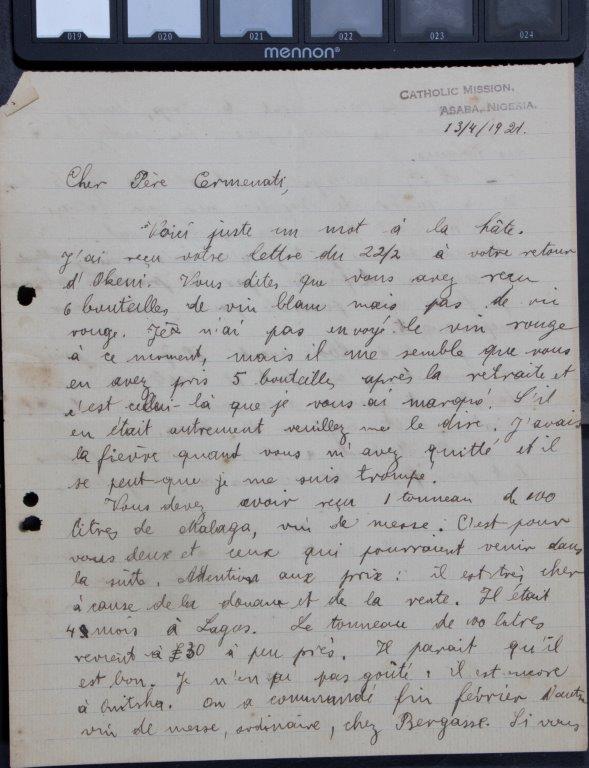 019 020 021 022 023 024
mennon®
CATHOLIC MISSION,
ASABA, NIGERIA.
13/4/1921.
Cher Père Ermenati,
Voici juste un mot à la hâte.
J'ai reçu votre lettre du 22/2 à votre retour
d'Okeni. Vous dites que vous avez reçu
6 bouteilles de vin blanc mais pas de vin
rouge. Je n'ai pas envoyé le vin rouge
à ce moment, mais il me semble que vous
en avez pris 5 bouteilles après la retraite et
c'est celui-là que je vous ai marqué. S'il
en était autrement veuillez me le dire. J'avais
la fièvre quand vous m'avez quitté et il
se peut que je me suis trompé.
Vous devez avoir reçu 1 tonneau de 100
litres de Malaga, vin de messe. C'est pour
vous deux et ceux qui pourraient venir dans
la suite. Attention aux prix: il est très cher
à cause de la douane et de la vente. Il était
4 mois à Lagos. Le tonneau de 100 litres
revient à £30 à peu près. Il parait qu'il
est bon. Je n'en ai pas goûté: il est encore
à Onitsha. On a commandé fin février d'autre
vin de messe, ordinaire, chez Bergasse. Si vous